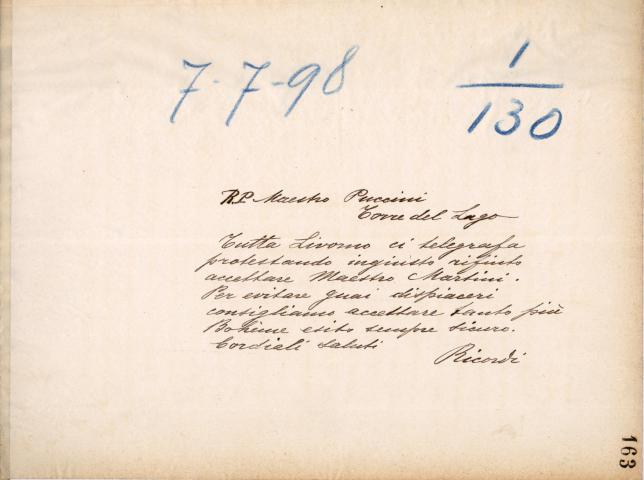 7-7-98
1
130
RP Maestro Puccini
Torre del Lago
Tutta Livorno ci telegrafa
protestando ingiusto rifiuto
accettare Maestro Martini.
Per evitare guai dispiaceri
consigliamo accettare tanto più
Bohème esito sempre sicuro.
Cordiali saluti
Ricordi
163